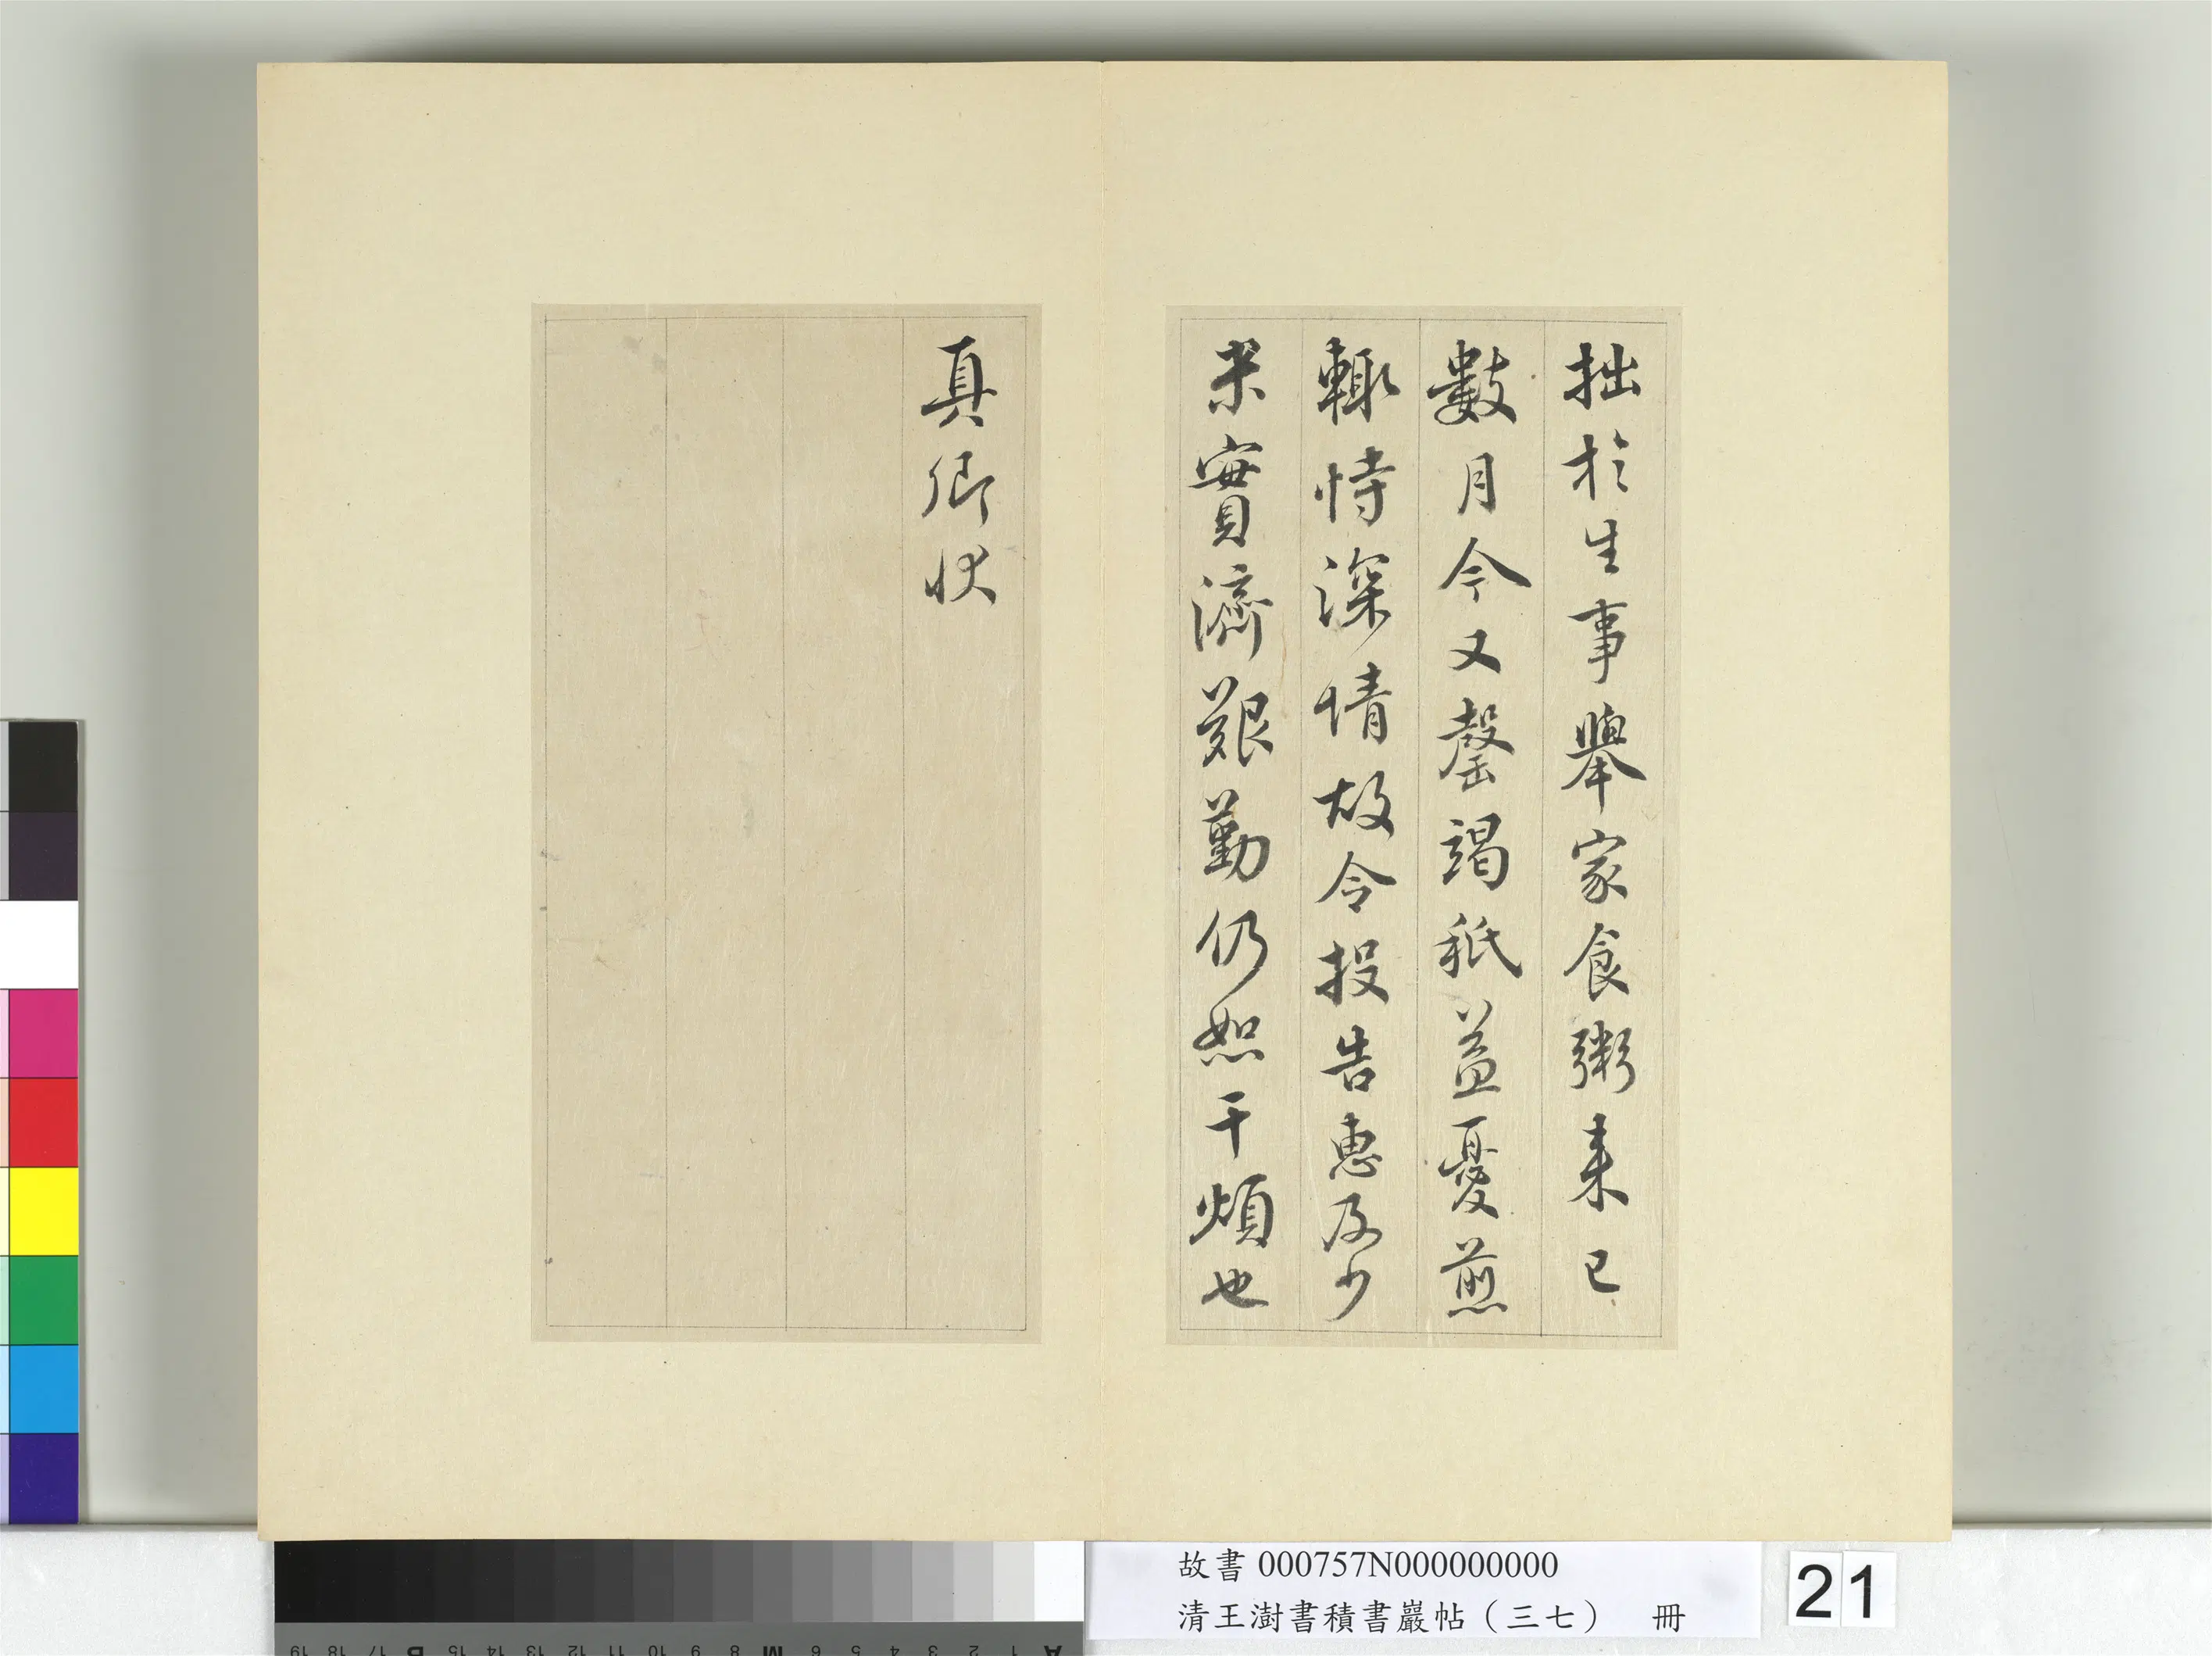 拙於生事舉家食粥來已
數月今又罄竭秖益憂煎
輒恃深情故令投告惠及少
米實濟艱勤仍恕干煩也
真卿狀
故書 000757N000000000
清王澍書積書巖帖（三七） 冊
21
A 1 2 3 4 5 6 M 8 9 10 11 12 13 14 15 B 17 18 19